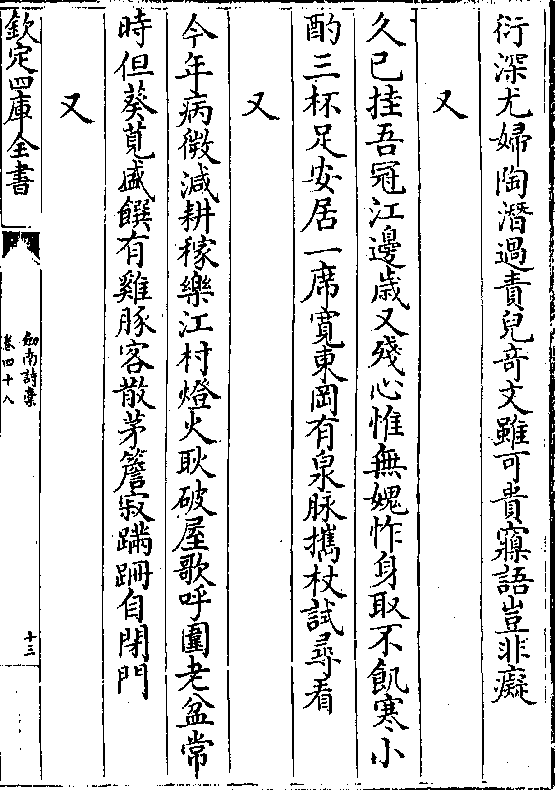 衍深尤婦陶潛過責兒奇文雖可貴寱語豈非癡
又
久已挂吾冠江邊歳又殘心惟無媿怍身取不飢寒小
酌三杯足安居一席寛東岡有泉脉攜杖試尋看
又
今年病微減耕稼樂江村燈火耿破屋歌呼圍老盆常
時但葵莧盛饌有雞豚客散茅簷寂蹣跚自閉門
又
欽定四庫全書
劍南詩稾
卷四十八
十三